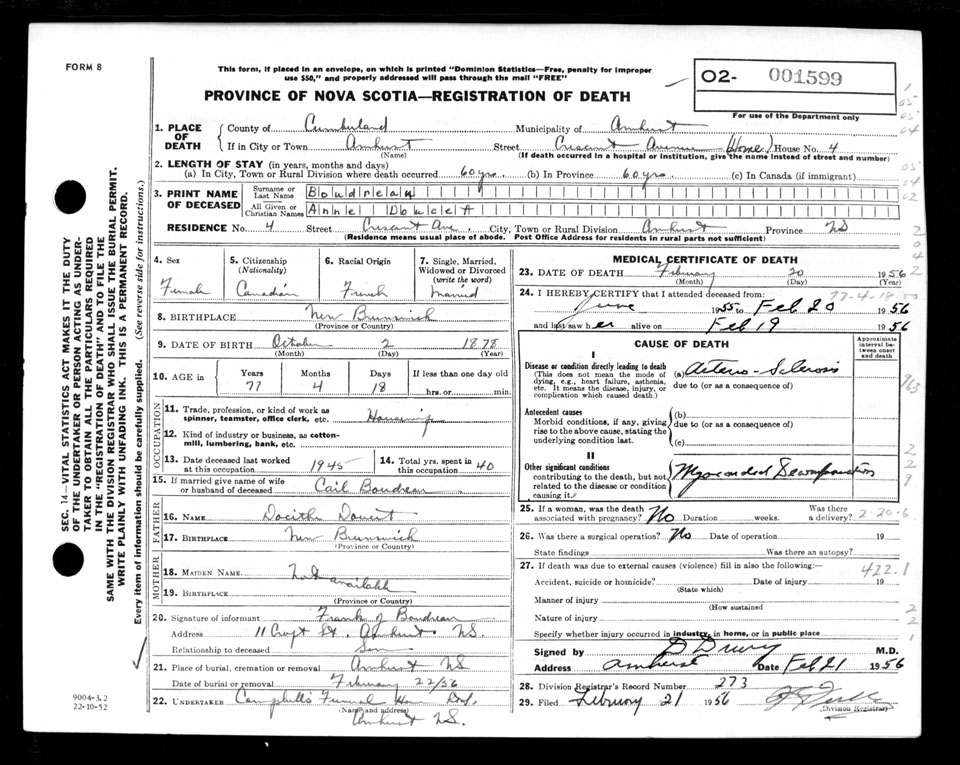 FORM 8
This form, if placed in an envelope, on which is printed "Dominion Statistics—Free, penalty for improper
use $50," and properly addressed will pass through the mail "FREE"
PROVINCE OF NOVA SCOTIA—REGISTRATION OF DEATH
O2- 001599
For use of the Department only
1. PLACE OF DEATH
County of Cumberland Municipality of Amherst
If in City or Town Amherst Street Crescent Avenue (Home) House No. 4
(Name) (If death occurred in a hospital or institution, give the name instead of street and number)
2. LENGTH OF STAY (in years, months and days)
(a) In City, Town or Rural Division where death occurred 60 yrs. (b) In Province 60 yrs. (c) In Canada (if immigrant)
3. PRINT NAME OF DECEASED
Surname or Last Name Boudreau
All Given or Christian Names Anne Doucet
RESIDENCE No. 4 Street Crescent Ave. City, Town or Rural Division Amherst Province NS
(Residence means usual place of abode. Post Office Address for residents in rural parts not sufficient)
4. Sex Female
5. Citizenship (Nationality) Canadian
6. Racial Origin French
7. Single, Married, Widowed or Divorced (write the word) Married
8. BIRTHPLACE New Brunswick
(Province or Country)
9. DATE OF BIRTH October 2 1878
(Month) (Day) (Year)
10. AGE in Years 77 Months 4 Days 18 If less than one day old
hrs. or min.
OCCUPATION
11. Trade, profession, or kind of work as
spinner, teamster, office clerk, etc. Housewife
12. Kind of industry or business, as cotton-
mill, lumbering, bank, etc.
13. Date deceased last worked
at this occupation 1945
14. Total yrs. spent in
this occupation 40
15. If married give name of wife
or husband of deceased Cail Boudreau
FATHER
16. NAME Docithe Doucet
17. BIRTHPLACE New Brunswick
(Province or Country)
MOTHER
18. MAIDEN NAME Not available
19. BIRTHPLACE
(Province or Country)
20. Signature of informant Frank J Boudreau
Address 11 Croft St. Amherst NS.
Relationship to deceased Son
21. Place of burial, cremation or removal Amherst NS
Date of burial or removal February 22/56
22. UNDERTAKER Campbell's Funeral Home
(Name and address)
Amherst NS.
MEDICAL CERTIFICATE OF DEATH
23. DATE OF DEATH February 20 1956
(Month) (Day) (Year)
24. I HEREBY CERTIFY that I attended deceased from: 77-4-18
June 1955 to Feb 20 1956
and last saw her alive on Feb 19 1956
CAUSE OF DEATH
Approximate interval between onset and death
I
Disease or condition directly leading to death
(This does not mean the mode of
dying, e.g., heart failure, asthenia,
etc. It means the disease, injury, or
complication which caused death.)
(a) Arterio-Sclerosis
due to (or as a consequence of)
Antecedent causes
Morbid conditions, if any, giving
rise to the above cause, stating the
underlying condition last.
(b)
due to (or as a consequence of)
(c)
II
Other significant conditions
contributing to the death, but not
related to the disease or condition
causing it.
Myocardial Decompensation
25. If a woman, was the death
associated with pregnancy? No Duration weeks. Was there
a delivery? 2-20-6
26. Was there a surgical operation? No Date of operation 19
State findings Was there an autopsy?
27. If death was due to external causes (violence) fill in also the following:— 422.1
Accident, suicide or homicide? Date of injury 19
(State which)
Manner of injury
(How sustained
Nature of injury
Specify whether injury occurred in industry, in home, or in public place
Signed by D Drury M.D.
Address Amherst Date Feb 21 1956
28. Division Registrar's Record Number 273
29. Filed February 21 1956
(Division Registrar)
SEC. 14—VITAL STATISTICS ACT MAKES IT THE DUTY
OF THE UNDERTAKER OR PERSON ACTING AS UNDER-
TAKER TO OBTAIN ALL THE PARTICULARS REQUIRED
IN THE "REGISTRATION OF DEATH" AND TO FILE THE
SAME WITH THE DIVISION REGISTRAR WHO SHALL ISSUE THE BURIAL PERMIT.
WRITE PLAINLY WITH UNFADING INK. THIS IS A PERMANENT RECORD.
Every item of information should be carefully supplied. (See reverse side for instructions.)
9004-3.2
22-10-52